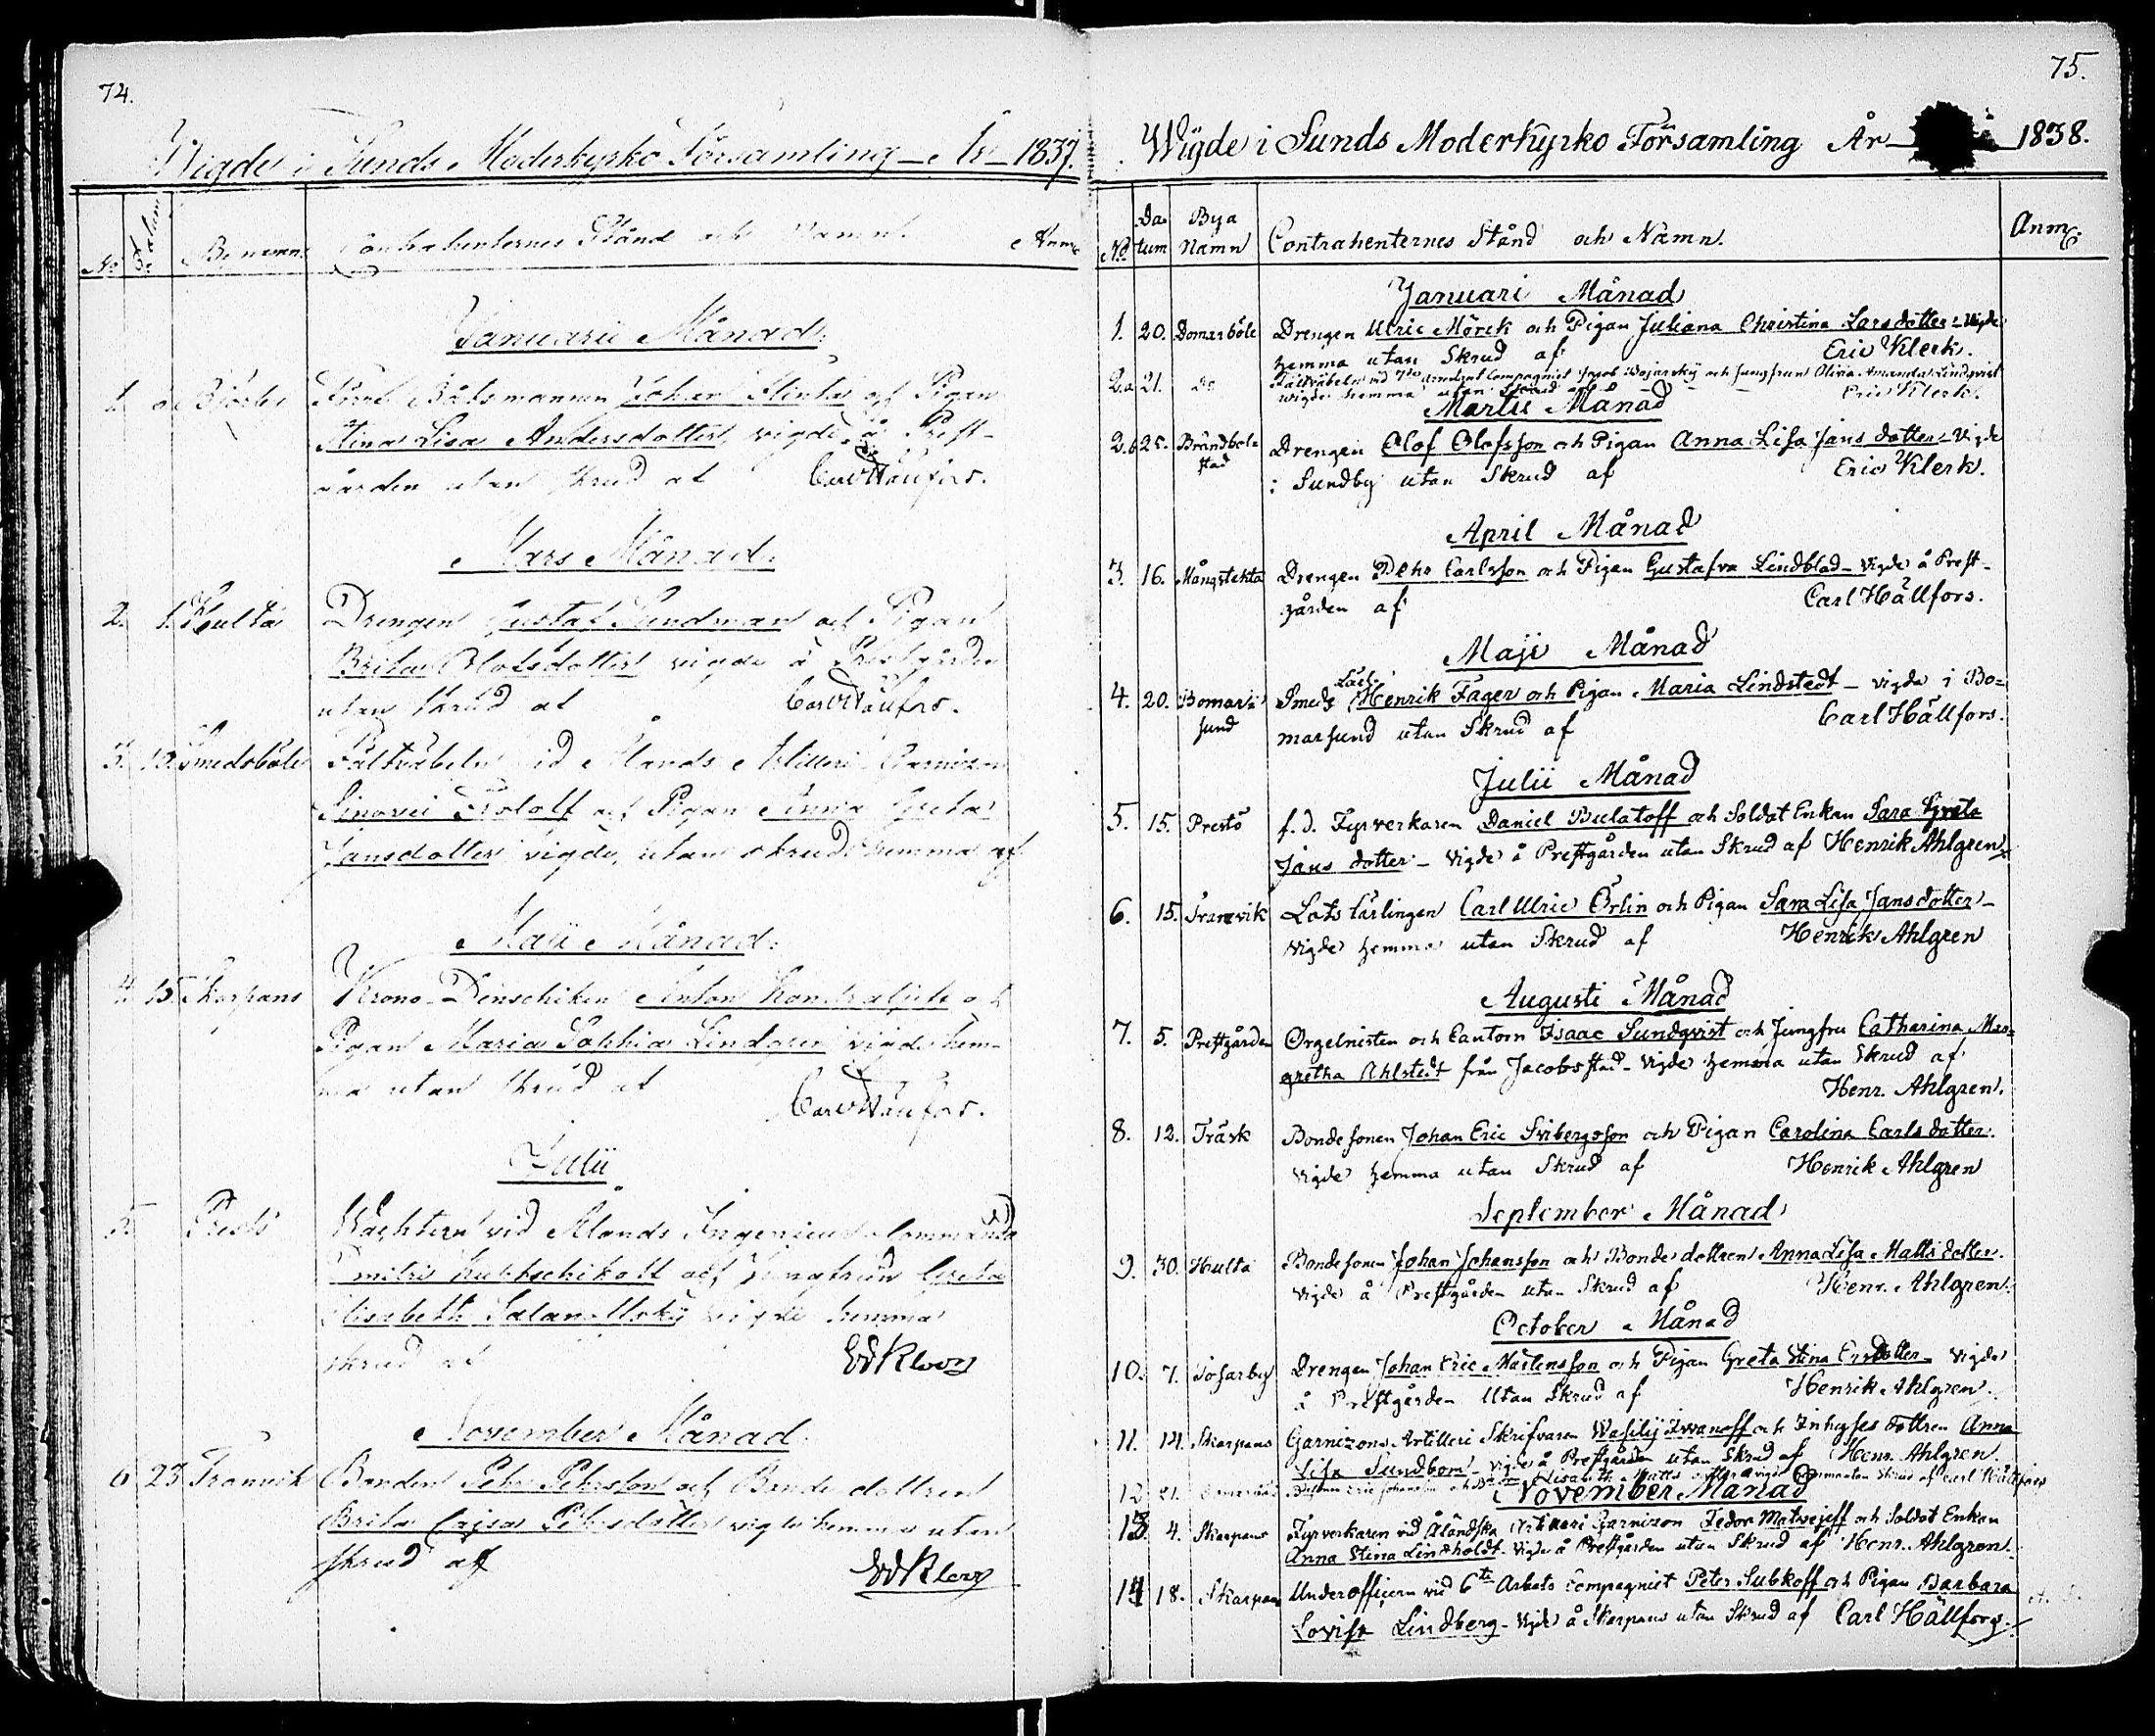 74.
Wigde i Sunds Moderkyrko Församling – År – 1837.
No Datum Bynamn Contrahenternes Stånd och Namn. Anm
Januarii Månad.
1. Björby Förre Båtsmannen Johan Flinta och Pigan
Stina Lisa Andersdotter, vigde å Prest-
gården utan skrud af Carl Hällfors.
Mars Månad.
2. 1. Hulta Drengen Gustaf Sundman och Pigan
Brita Olofsdotter vigde å Prestgården
utan skrud af Carl Hällfors.
3. Smedsböle Fältväbeln vid Ålands Artilleri Garnizon
och Pigan Anna Greta
Jansdotter vigde, utan skrud hemma af
Maii Månad.
4. 15. Skarpans Krono-Denschiken Anton och
Pigan Maria Sophia Lindgren vigde hem-
ma utan skrud af Carl Hällfors.
Julii
5. Prestö Wächtern vid Ålands Ingenieur Commando
Dmitri och Jungfrun Greta
Elisabeth vigde hemma
skrud af
November Månad.
6 23 Tranvik Bonden Pehr Pehrsson och Bonde dottren
Brita Cajsa Pehrsdotter vigde hemma utan
skrud af
75.
Wigde i Sunds Moderkyrko Församling År 1838.
No Datum Bya Namn Contrahenternes Stånd och Namn. Anm.
Januari Månad
1. 20. Domarböle Drengen Ulric Mörck och Pigan Juliana Christina Larsdotter – Vigde
hemma utan Skrud af Eric Klerk.
2.a 21. do Fältväbeln vid 7de Arrestant Compagniet Jacob Wojarskij och Jungfrun Olivia Amanda Lindqvist
wigde hemma utan Skrud af Eric Klerk.
Martii Månad
2.b 25. Brändbolstad Drengen Olof Olofsson och Pigan Anna Lisa Jans dotter – Vigde
i Sundby utan Skrud af Eric Klerk.
April Månad
3. 16. Mångstekta Drengen Pehr Carlsson och Pigan Gustafva Lindblad – Vigde å Prest-
gården af Carl Hällfors.
Maji Månad
4. 20. Bomarsund Smeds Lärl. Henrik Fager och Pigan Maria Lindstedt – vigde i Bo-
marsund utan Skrud af Carl Hällfors.
Julii Månad
5. 15. Prestö f.d. Fyrverkaren Daniel Bulatoff och Soldat Enkan Sara Greta
Jans dotter – Vigde å Prestgården utan Skrud af Henrik Ahlgren.
6. 15. Tranevik Lots Lärlingen Carl Ulric Örlin och Pigan Sara Lisa Jansdotter –
Vigde hemma utan Skrud af Henrik Ahlgren
Augusti Månad
7. 5. Prestgården Orgelnisten och Cantorn Isaac Sundqvist och Jungfru Catharina Mar-
gretha Ahlstedt från Jacobsstad – Vigde hemma utan Skrud af
Henr. Ahlgren.
8. 12. Träsk Bondesonen Johan Eric Svibergsson och Pigan Carolina Carlsdotter.
Vigde hemma utan Skrud af Henrik Ahlgren
September Månad
9. 30. Hulta Bondesonen Johan Johansson och Bonde dottren Anna Lisa Mattsdotter.
Vigde å Prestgården utan Skrud af Henr. Ahlgren.
October Månad
10. 7. Tosarby Drengen Johan Eric Mårtensson och Pigan Greta Stina Ersdotter – Vigde
å Prestgården Utan Skrud af Henrik Ahlgren.
11. 14. Skarpans Garnizons Artilleri Skrifvaren Wasilij Iwanoff och Inhyses dottren Anna
Lisa Sundbom – Vigde å Prestgården utan Skrud af Henr. Ahlgren.
12 21. Eric Johansson och Lisabeth Matts dotter vigde hemma utan Skrud af Carl Hällfors
November Månad
13. 4. Skarpans Fyrverkaren vid Åländska Artilleri Garnizon Fedor Matwejeff och Soldat Enkan
Anna Stina Lindholdt. Vigde å Prestgården utan Skrud af Henr. Ahlgren.
14 18. Skarpans Underofficern vid 6te Arbets Compagniet Peter Subkoff och Pigan Barbara
Lovisa Lindberg – Vigde å Skarpans utan Skrud af Carl Hällfors.